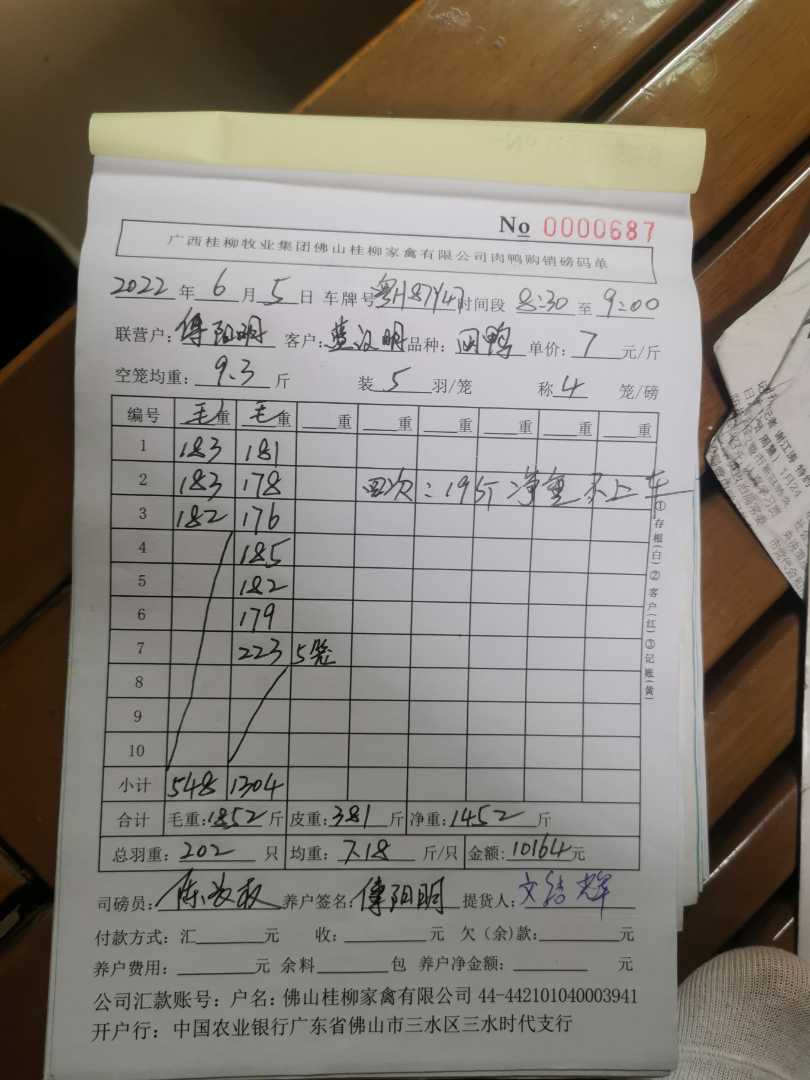 No 0000687
广西桂柳牧业集团佛山桂柳家禽有限公司肉鸭购销磅码单
2022年6月5日 车牌号 粤H87Y47 时间段 8:30 至 9:00
联营户: 傅阳明 客户: 明 品种: 鸭 单价: 7 元/斤
空笼均重: 9.3 斤 装 5 羽/笼 称 4 笼/磅
编号 毛重 毛重 重 重 重 重 重 重
1 183 181
2 183 178 次: 19斤 净重 上车
3 182 176
4 185
5 182
6 179
7 223 5笼
8
9
10
小计 548 1304
合计 毛重: 1852 斤 皮重: 381 斤 净重: 1452 斤
总羽重: 202 只 均重: 7.18 斤/只 金额: 10164 元
司磅员: 陈 养户签名: 傅阳明 提货人: 文结辉
付款方式: 汇 元 收: 元 欠(余)款: 元
养户费用: 元 余料 包 养户净金额: 元
公司汇款账号: 户名: 佛山桂柳家禽有限公司 44-442101040003941
开户行: 中国农业银行广东省佛山市三水区三水时代支行
①存根(白)②客户(红)③记账(黄)